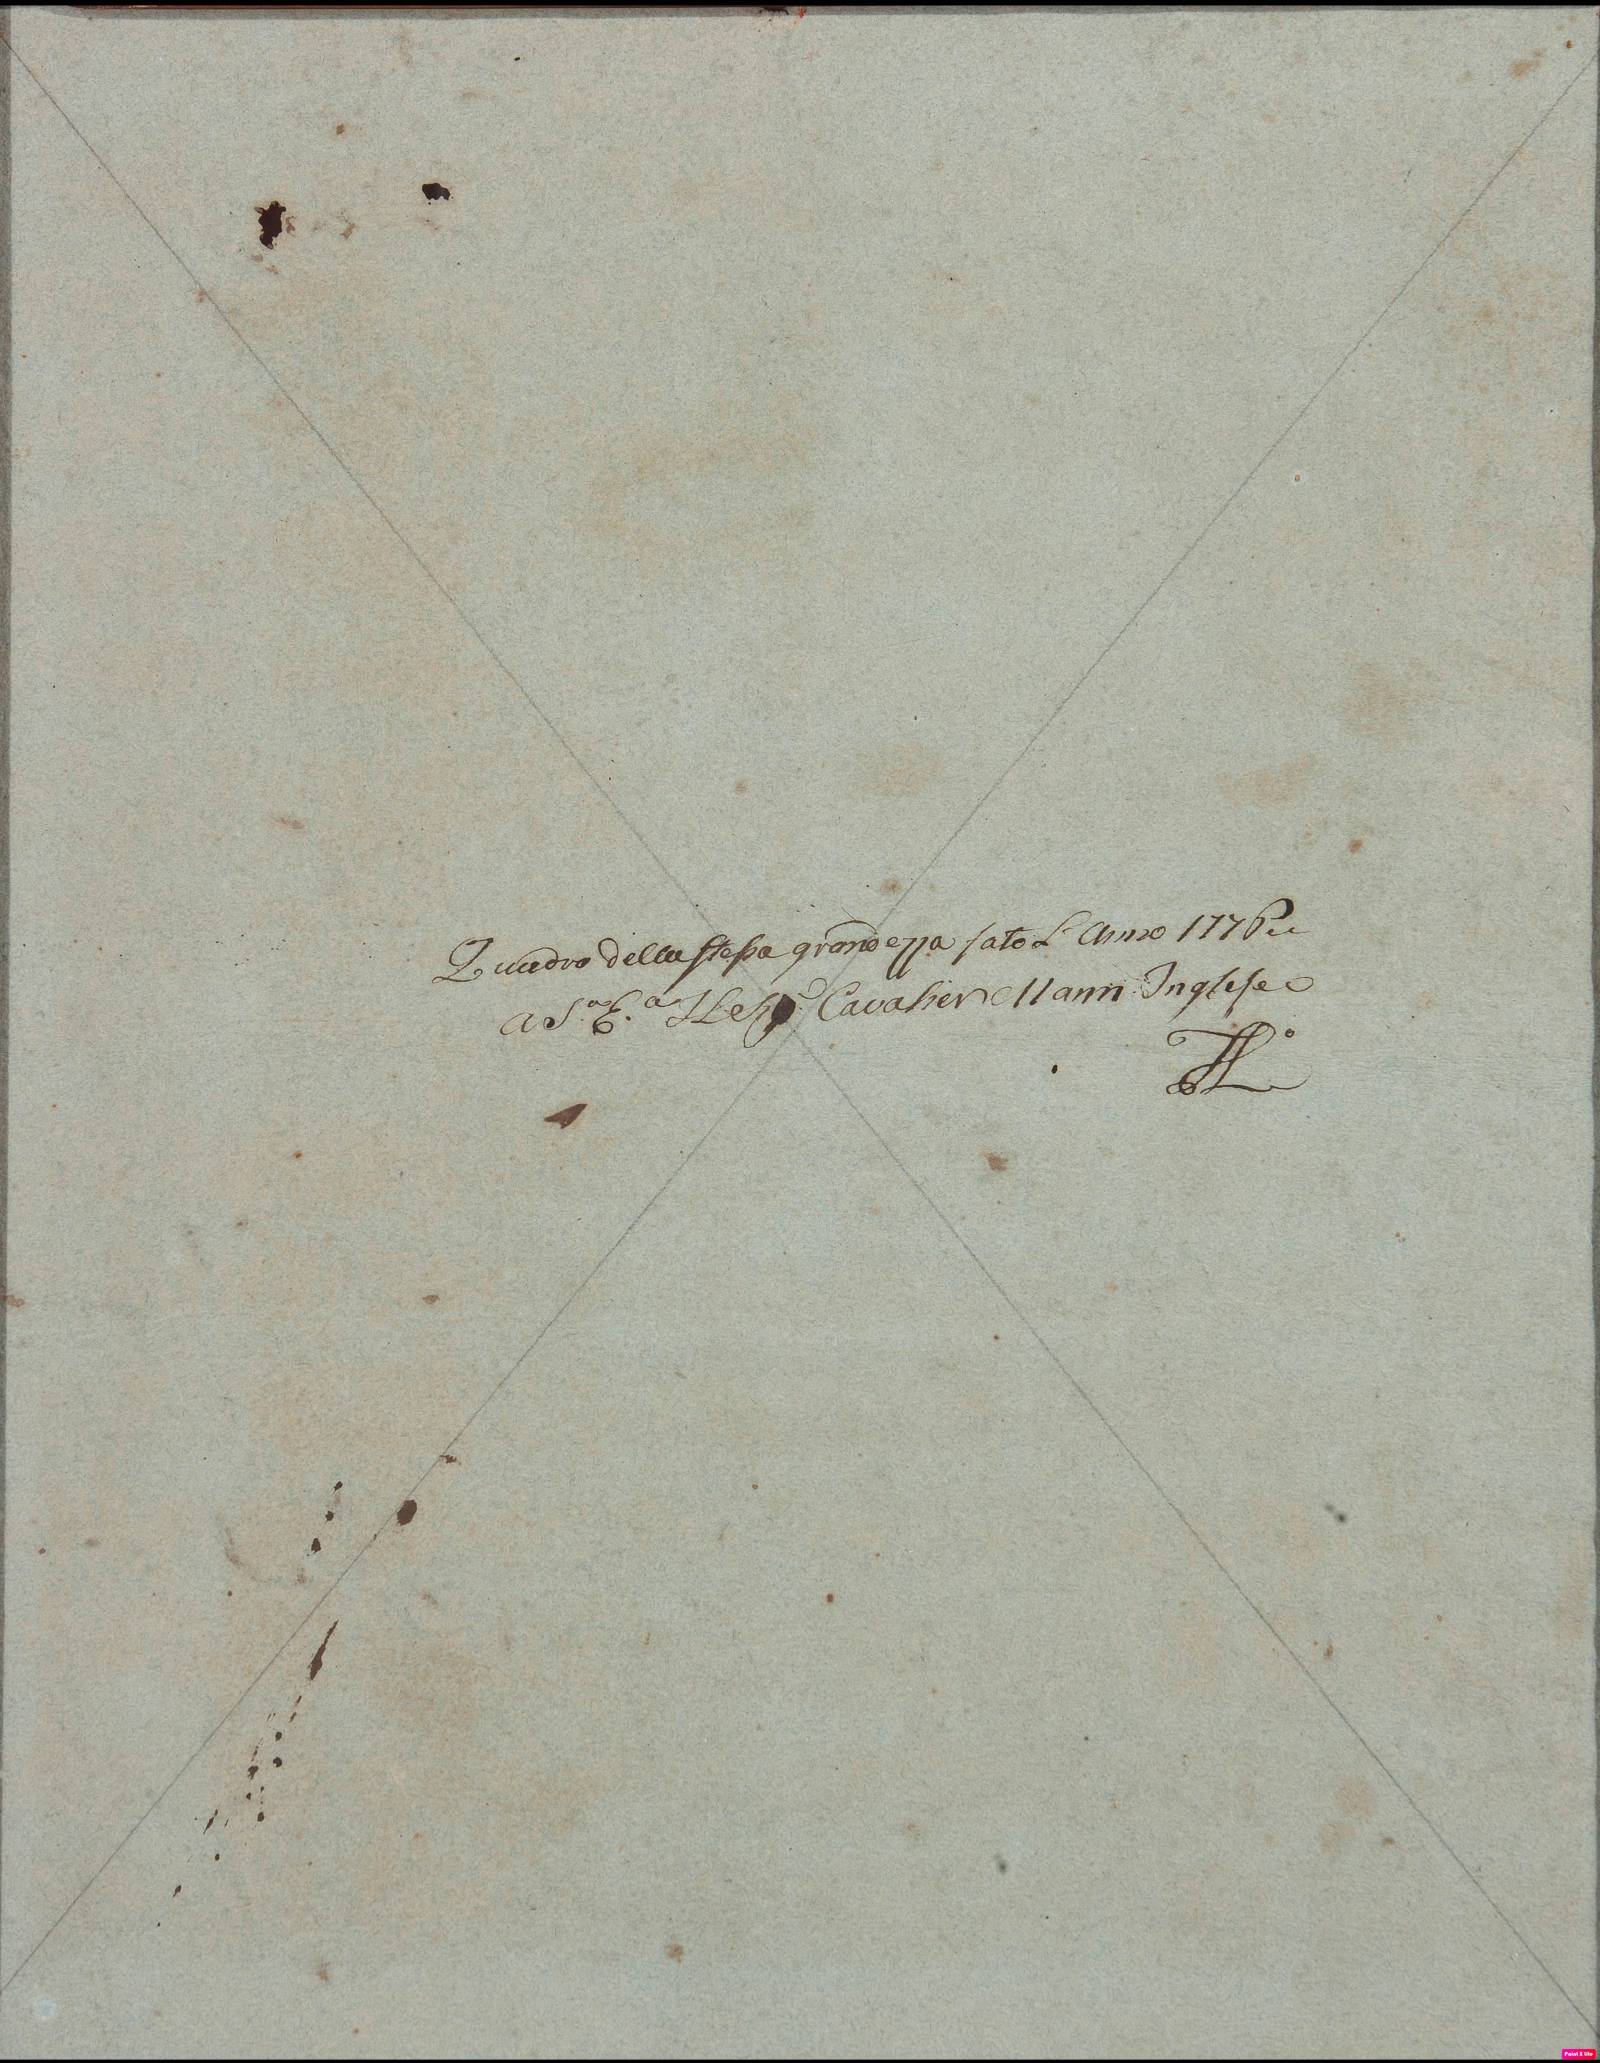 Quadro della stessa grandezza fato L' Anno 1776
a S.a E.a Il Cavalier Mann Inglese